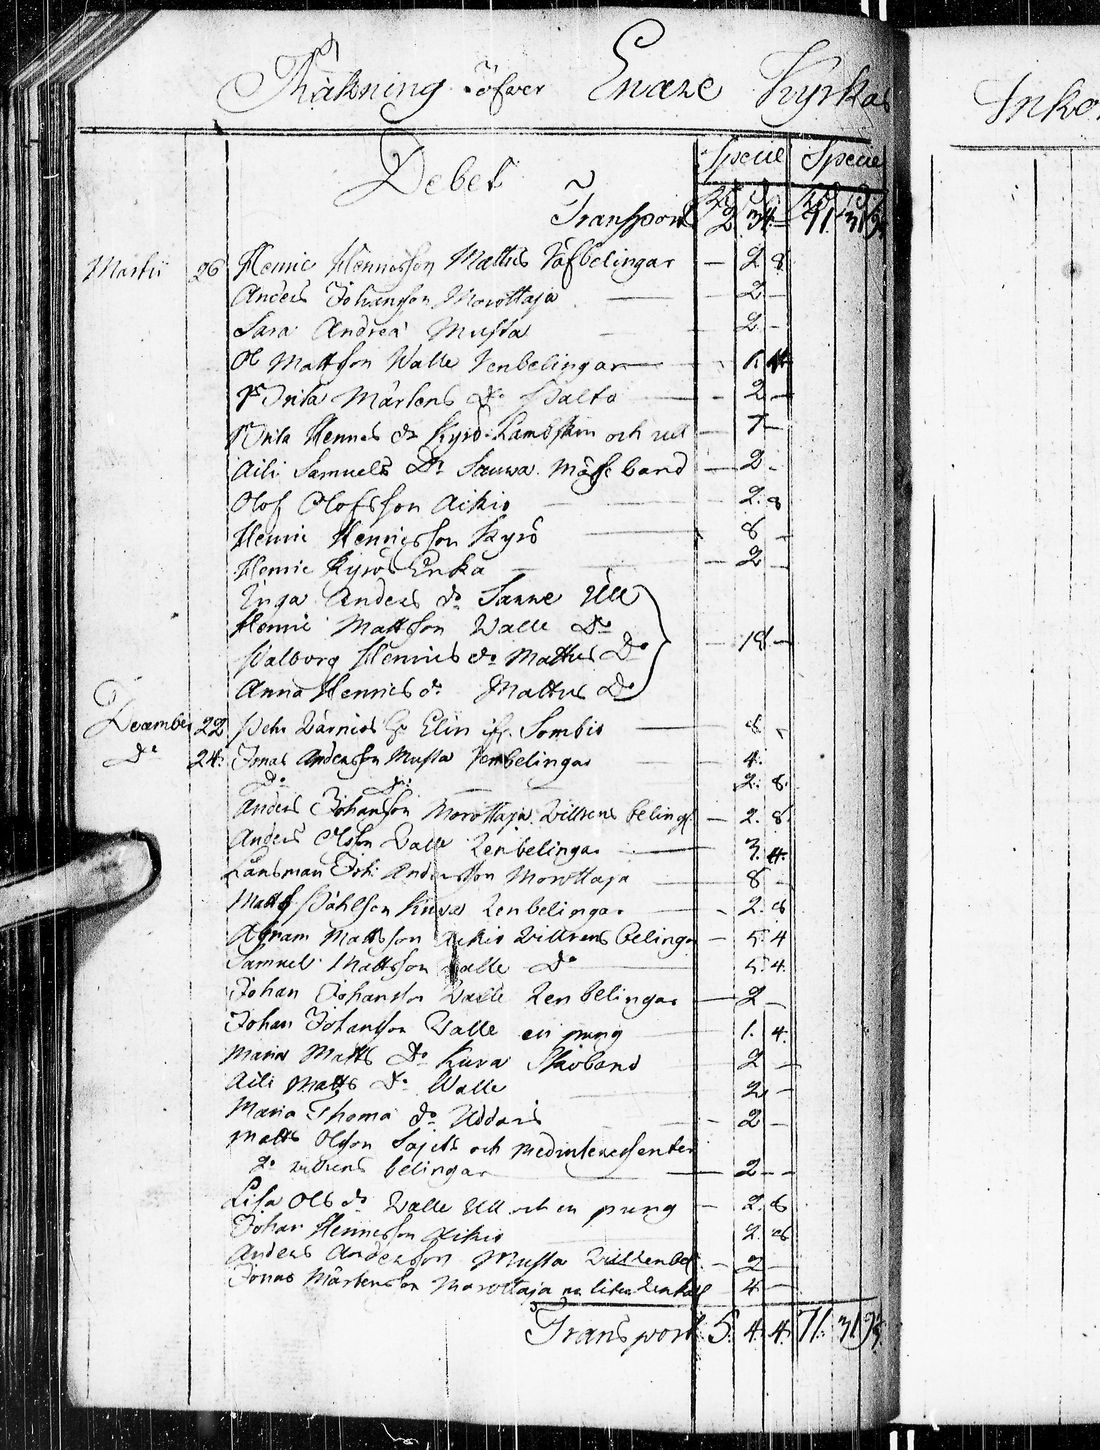 Räkning öfver Enare Kyrkas
Inko
Debet Specie Specie
Transport 2 34 – 71 31 9
Martii 26 Henric Henricsson Mattus Räfbelingar — 2 8
Anders Johansson Morottaja — 2 –
Sara Andreæ Musta — 2 –
Ol Mattson Walle Renbelingar — 1 4
Brita Mårtens Dr — 2 –
Brita Henrics dr Kyrö Lambskin och ull — 7 –
Aili Samuels Dr band — 2 –
Olof Olofsson Aikio — 2. 8
Henric Henricsson Kyrö — 8 –
Henric Kyrös Enka — 2 –
Inga Anders dr Ull
Henric Mattsson Walle Do
Walborg Henrics dr Mattus Do — 18 –
Anna Henrics dr Mattus Do
December 22 Petr Elin Sombio — 8
Do 24. Jonas Andersson Musta Renbelingar — 4.
Do Do 2. 8.
Anders Johansson Morottaja belingr — 2. 8.
Anders Olsson Valle Renbelingar — 3. 4.
Länsman Joh: Andersson Morottaja — 8 –
Matts Påhlson Kuva Renbelingar — 2. 8
Abram Mattsson Aikio belingr — 5. 4
Samuel Mattsson Valle Do 5. 4.
Johan Johansson Valle Renbelingar — 2 –
Johan Johansson Valle en pung 1. 4.
Maria Matts Dr Kuva Skoband — 2 –
Aili Matts Dr Walle 2 –
Maria Thomæ dr — 2 –
Matts Olsson och Medinteressenter
belingar — 2 – –
Lisa Ols dr Valle Ull och en pung — 2. 8
Johan Henricsson Aikio 2. 8
Anders Andersson Musta — 2 –
Jonas Mårtensson Morottaja en liten — 4 –
Transport 5. 4. 4. 71. 31 9